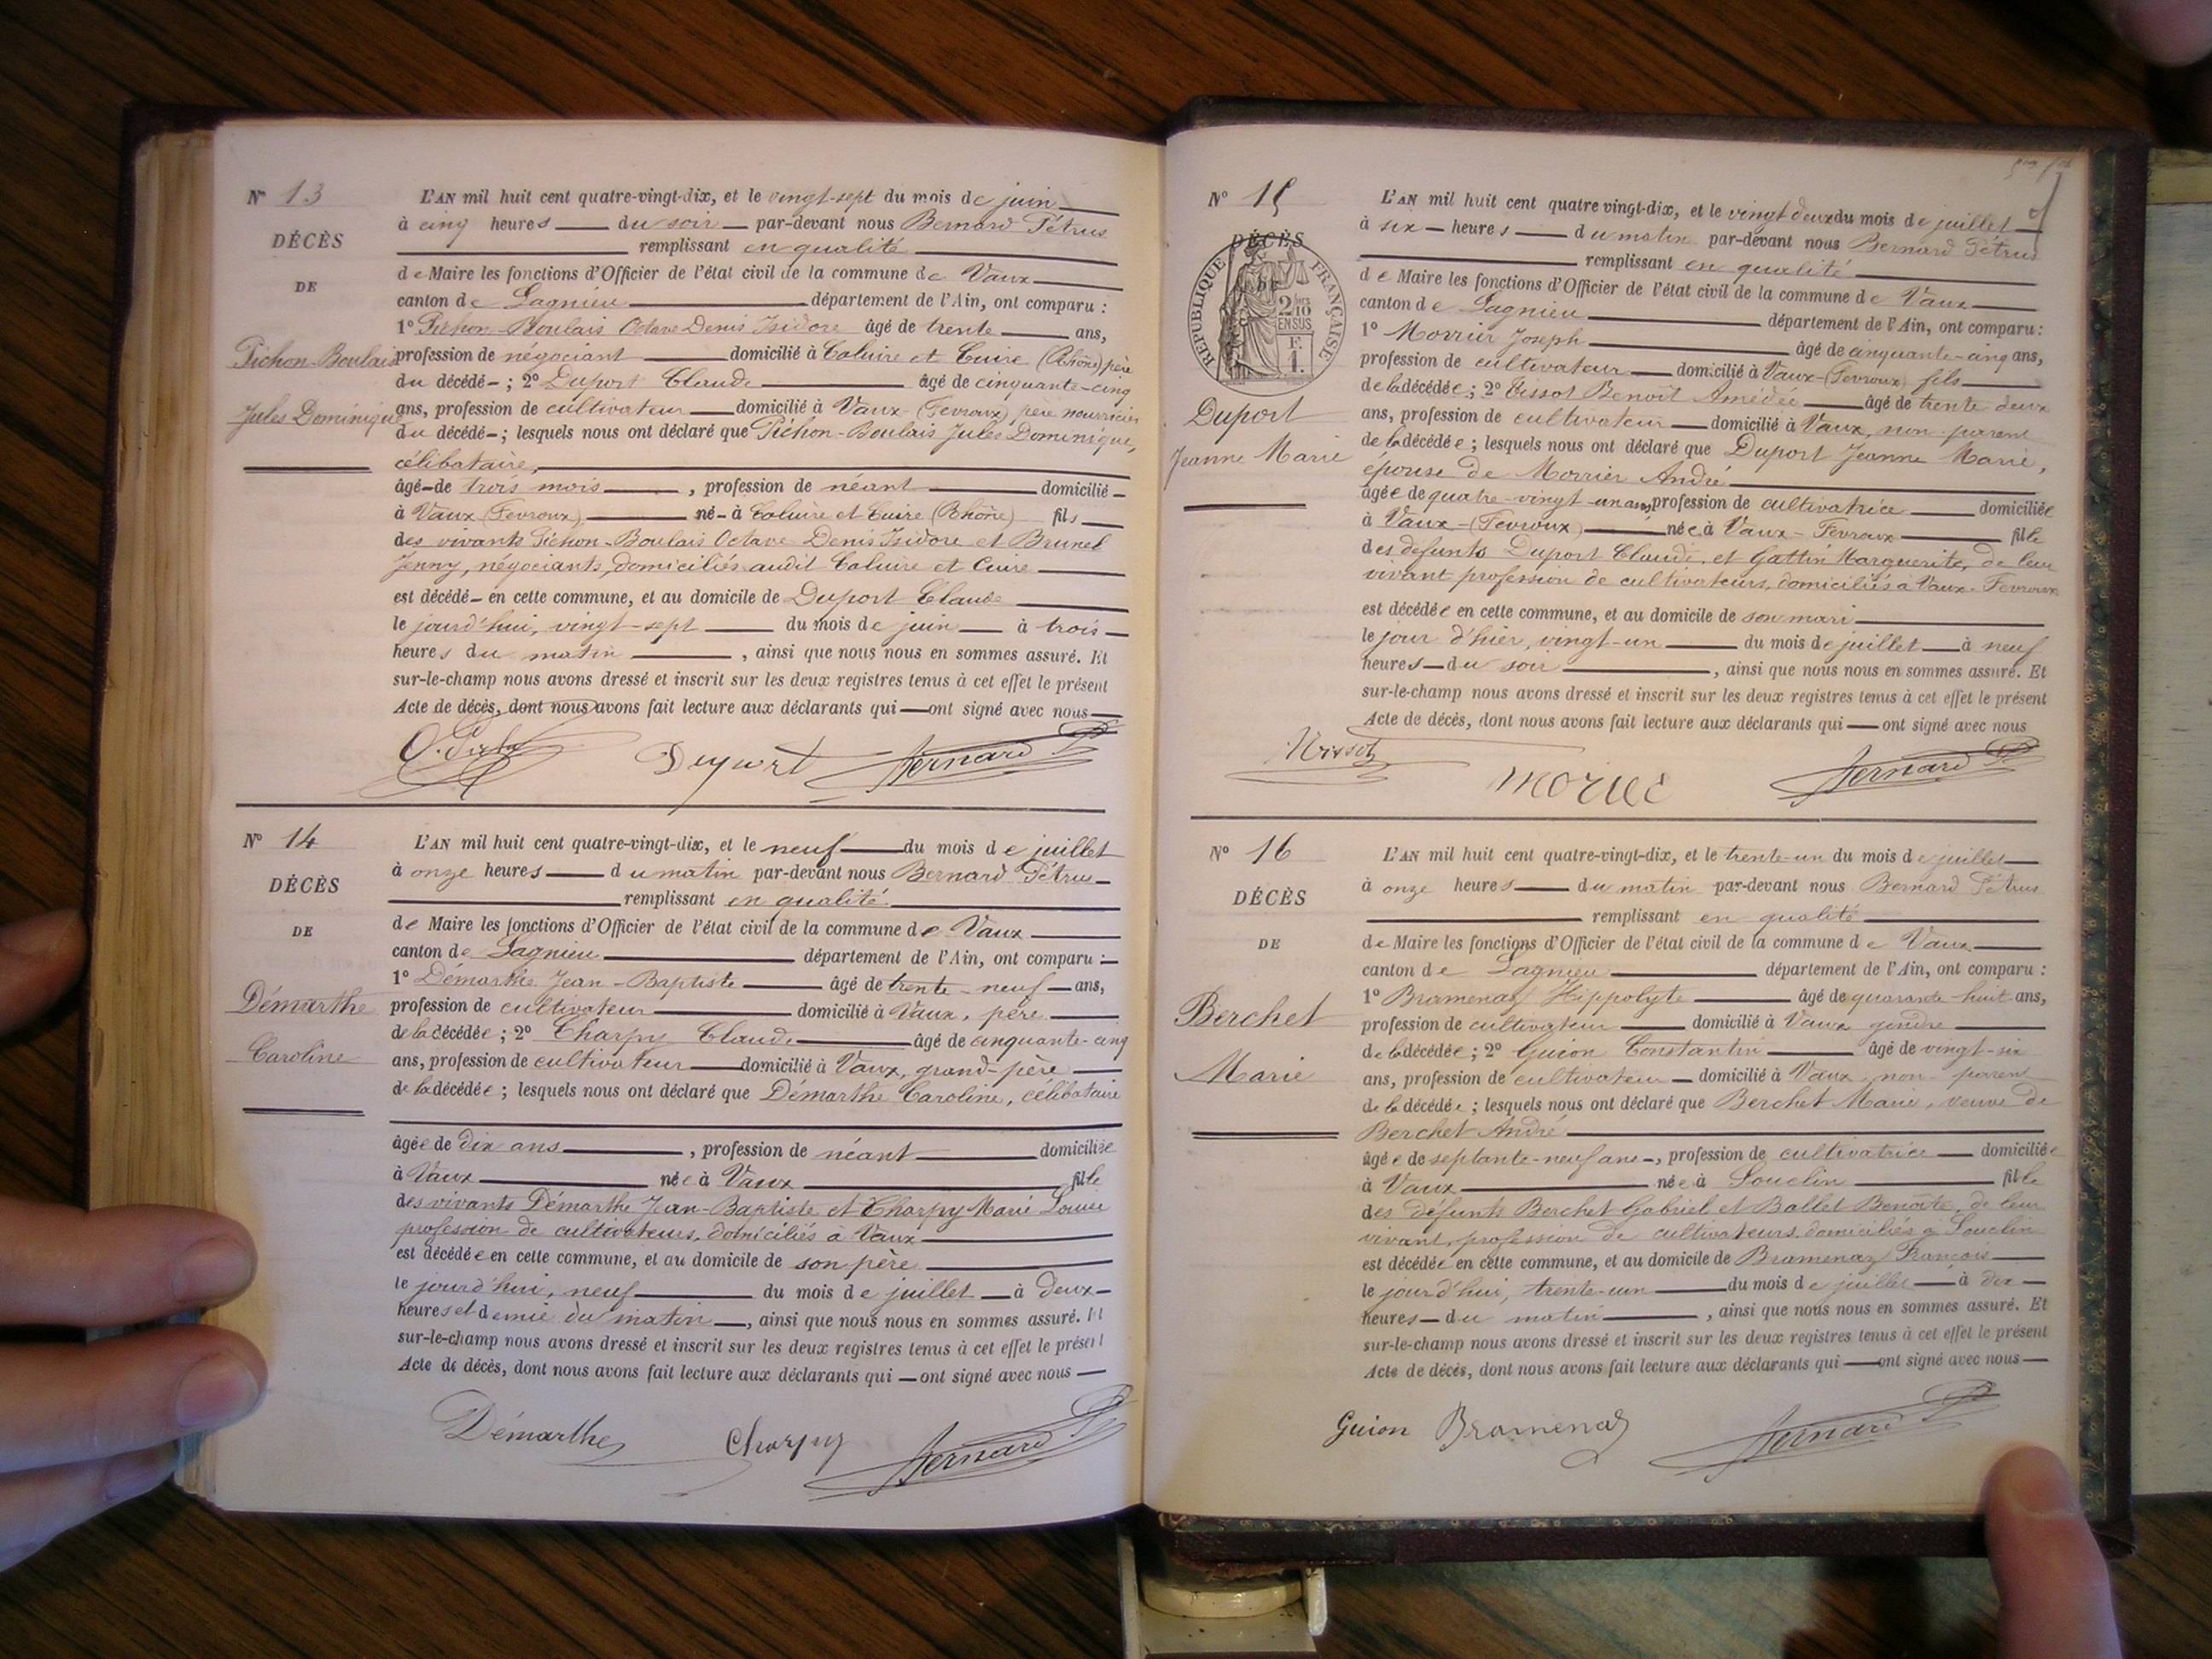 N° 13
DÉCÈS
DE
Pichon-Boulais
Jules Dominique
L'AN mil huit cent quatre-vingt-dix, et le vingt-sept du mois de juin
à cinq heures du soir par-devant nous Bernard Pétrus
remplissant en qualité
de Maire les fonctions d'Officier de l'état civil de la commune de Vaux
canton de Lagnieu département de l'Ain, ont comparu :
1° Pichon-Boulais Octave Denis Isidore âgé de trente ans,
profession de négociant domicilié à Caluire et Cuire (Rhône) père
du décédé ; 2° Duport Claude âgé de cinquante-cinq
ans, profession de cultivateur domicilié à Vaux (Fevroux) père nourricier
du décédé ; lesquels nous ont déclaré que Pichon-Boulais Jules Dominique,
célibataire,
âgé de trois mois , profession de néant domicilié
à Vaux (Fevroux) né à Caluire et Cuire (Rhône) fils
des vivants Pichon-Boulais Octave Denis Isidore et Brunel
Jenny, négociants, domiciliés audit Caluire et Cuire
est décédé en cette commune, et au domicile de Duport Claude
le jourd'hui, vingt-sept du mois de juin à trois
heures du matin , ainsi que nous nous en sommes assuré. Et
sur-le-champ nous avons dressé et inscrit sur les deux registres tenus à cet effet le présent
Acte de décès, dont nous avons fait lecture aux déclarants qui ont signé avec nous
Duport Bernard P
N° 14
DÉCÈS
DE
Démarthe
Caroline
L'AN mil huit cent quatre-vingt-dix, et le neuf du mois de juillet
à onze heures du matin par-devant nous Bernard Pétrus
remplissant en qualité
de Maire les fonctions d'Officier de l'état civil de la commune de Vaux
canton de Lagnieu département de l'Ain, ont comparu :
1° Démarthe Jean-Baptiste âgé de trente-neuf ans,
profession de cultivateur domicilié à Vaux, père
de la décédée ; 2° Charpy Claude âgé de cinquante-cinq
ans, profession de cultivateur domicilié à Vaux, grand-père
de la décédée ; lesquels nous ont déclaré que Démarthe Caroline, célibataire
âgée de dix ans , profession de néant domiciliée
à Vaux née à Vaux fille
des vivants Démarthe Jean-Baptiste et Charpy Marie Louise
profession de cultivateurs, domiciliés à Vaux
est décédée en cette commune, et au domicile de son père
le jourd'hui, neuf du mois de juillet à deux
heures et demie du matin , ainsi que nous nous en sommes assuré. Et
sur-le-champ nous avons dressé et inscrit sur les deux registres tenus à cet effet le présent
Acte de décès, dont nous avons fait lecture aux déclarants qui ont signé avec nous
Démarthe Charpy Bernard P
N° 15
DÉCÈS
DE
RÉPUBLIQUE FRANÇAISE
2/10 EN SUS
F. 1.
Duport
Jeanne Marie
L'AN mil huit cent quatre vingt-dix, et le vingt deux du mois de juillet
à six heures du matin par-devant nous Bernard Pétrus
remplissant en qualité
de Maire les fonctions d'Officier de l'état civil de la commune de Vaux
canton de Lagnieu département de l'Ain, ont comparu :
1° Morrier Joseph âgé de cinquante-cinq ans,
profession de cultivateur domicilié à Vaux-(Fevroux) fils
de la décédée ; 2° Tissot Benoît Amédée âgé de trente deux
ans, profession de cultivateur domicilié à Vaux, non parent
de la décédée ; lesquels nous ont déclaré que Duport Jeanne Marie,
épouse de Morrier André
âgée de quatre-vingt-un ans, profession de cultivatrice domiciliée
à Vaux-(Fevroux) née à Vaux-Fevroux fille
des défunts Duport Claude, et Gattin Marguerite, de leur
vivant profession de cultivateurs, domiciliés à Vaux-Fevroux
est décédée en cette commune, et au domicile de son mari
le jour d'hier, vingt-un du mois de juillet à neuf
heures du soir , ainsi que nous nous en sommes assuré. Et
sur-le-champ nous avons dressé et inscrit sur les deux registres tenus à cet effet le présent
Acte de décès, dont nous avons fait lecture aux déclarants qui ont signé avec nous
Bernard P
N° 16
DÉCÈS
DE
Berchet
Marie
L'AN mil huit cent quatre-vingt-dix, et le trente-un du mois de juillet
à onze heures du matin par-devant nous Bernard Pétrus
remplissant en qualité
de Maire les fonctions d'Officier de l'état civil de la commune de Vaux
canton de Lagnieu département de l'Ain, ont comparu :
1° Bramenaz Hippolyte âgé de quarante-huit ans,
profession de cultivateur domicilié à Vaux gendre
de la décédée ; 2° Guion Constantin âgé de vingt-six
ans, profession de cultivateur domicilié à Vaux, non parent
de la décédée ; lesquels nous ont déclaré que Berchet Marie, veuve de
Berchet André
âgée de septante-neuf ans , profession de cultivatrice domiciliée
à Vaux née à Souclin fille
des défunts Berchet Gabriel et Ballet Benoîte, de leur
vivant, profession de cultivateurs domiciliés à Souclin
est décédée en cette commune, et au domicile de Bramenaz François
le jourd'hui, trente-un du mois de juillet à dix
heures du matin , ainsi que nous nous en sommes assuré. Et
sur-le-champ nous avons dressé et inscrit sur les deux registres tenus à cet effet le présent
Acte de décès, dont nous avons fait lecture aux déclarants qui ont signé avec nous
Guion Bramenaz Bernard P